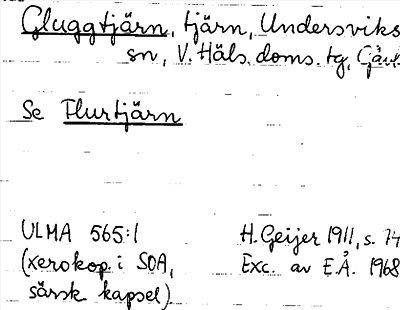 Gluggtjärn, tjärn, Undersviks
sn, V. Häls. doms. tg, Gävl.
Se Flurtjärn
ULMA 565:1 H. Geijer 1911, s. 74
(xerokop. i SOA, Exc. av E.Å. 1968
särsk. kapsel)